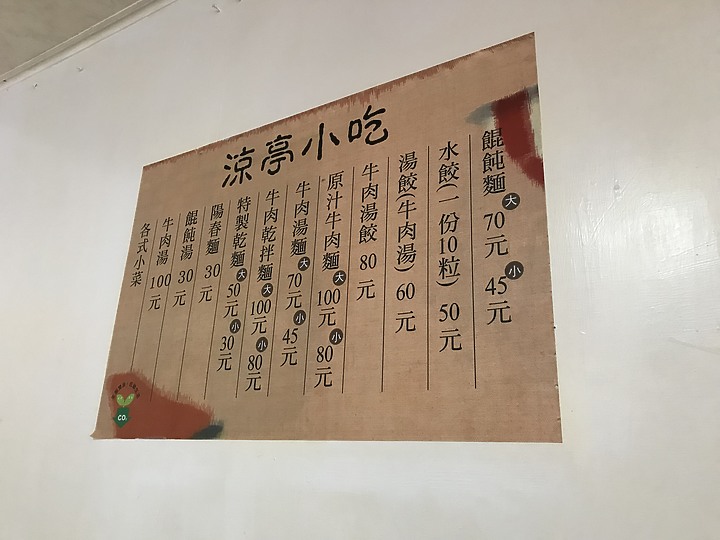 涼亭小吃
餛飩麵大70元小45元
水餃(一份10粒)50元
湯餃(牛肉湯)60元
牛肉湯餃80元
原汁牛肉麵大100元小80元
牛肉湯麵大70元小45元
牛肉乾拌麵大100元小80元
特製乾麵大50元小30元
陽春麵30元
餛飩湯30元
牛肉湯100元
各式小菜
CO₂